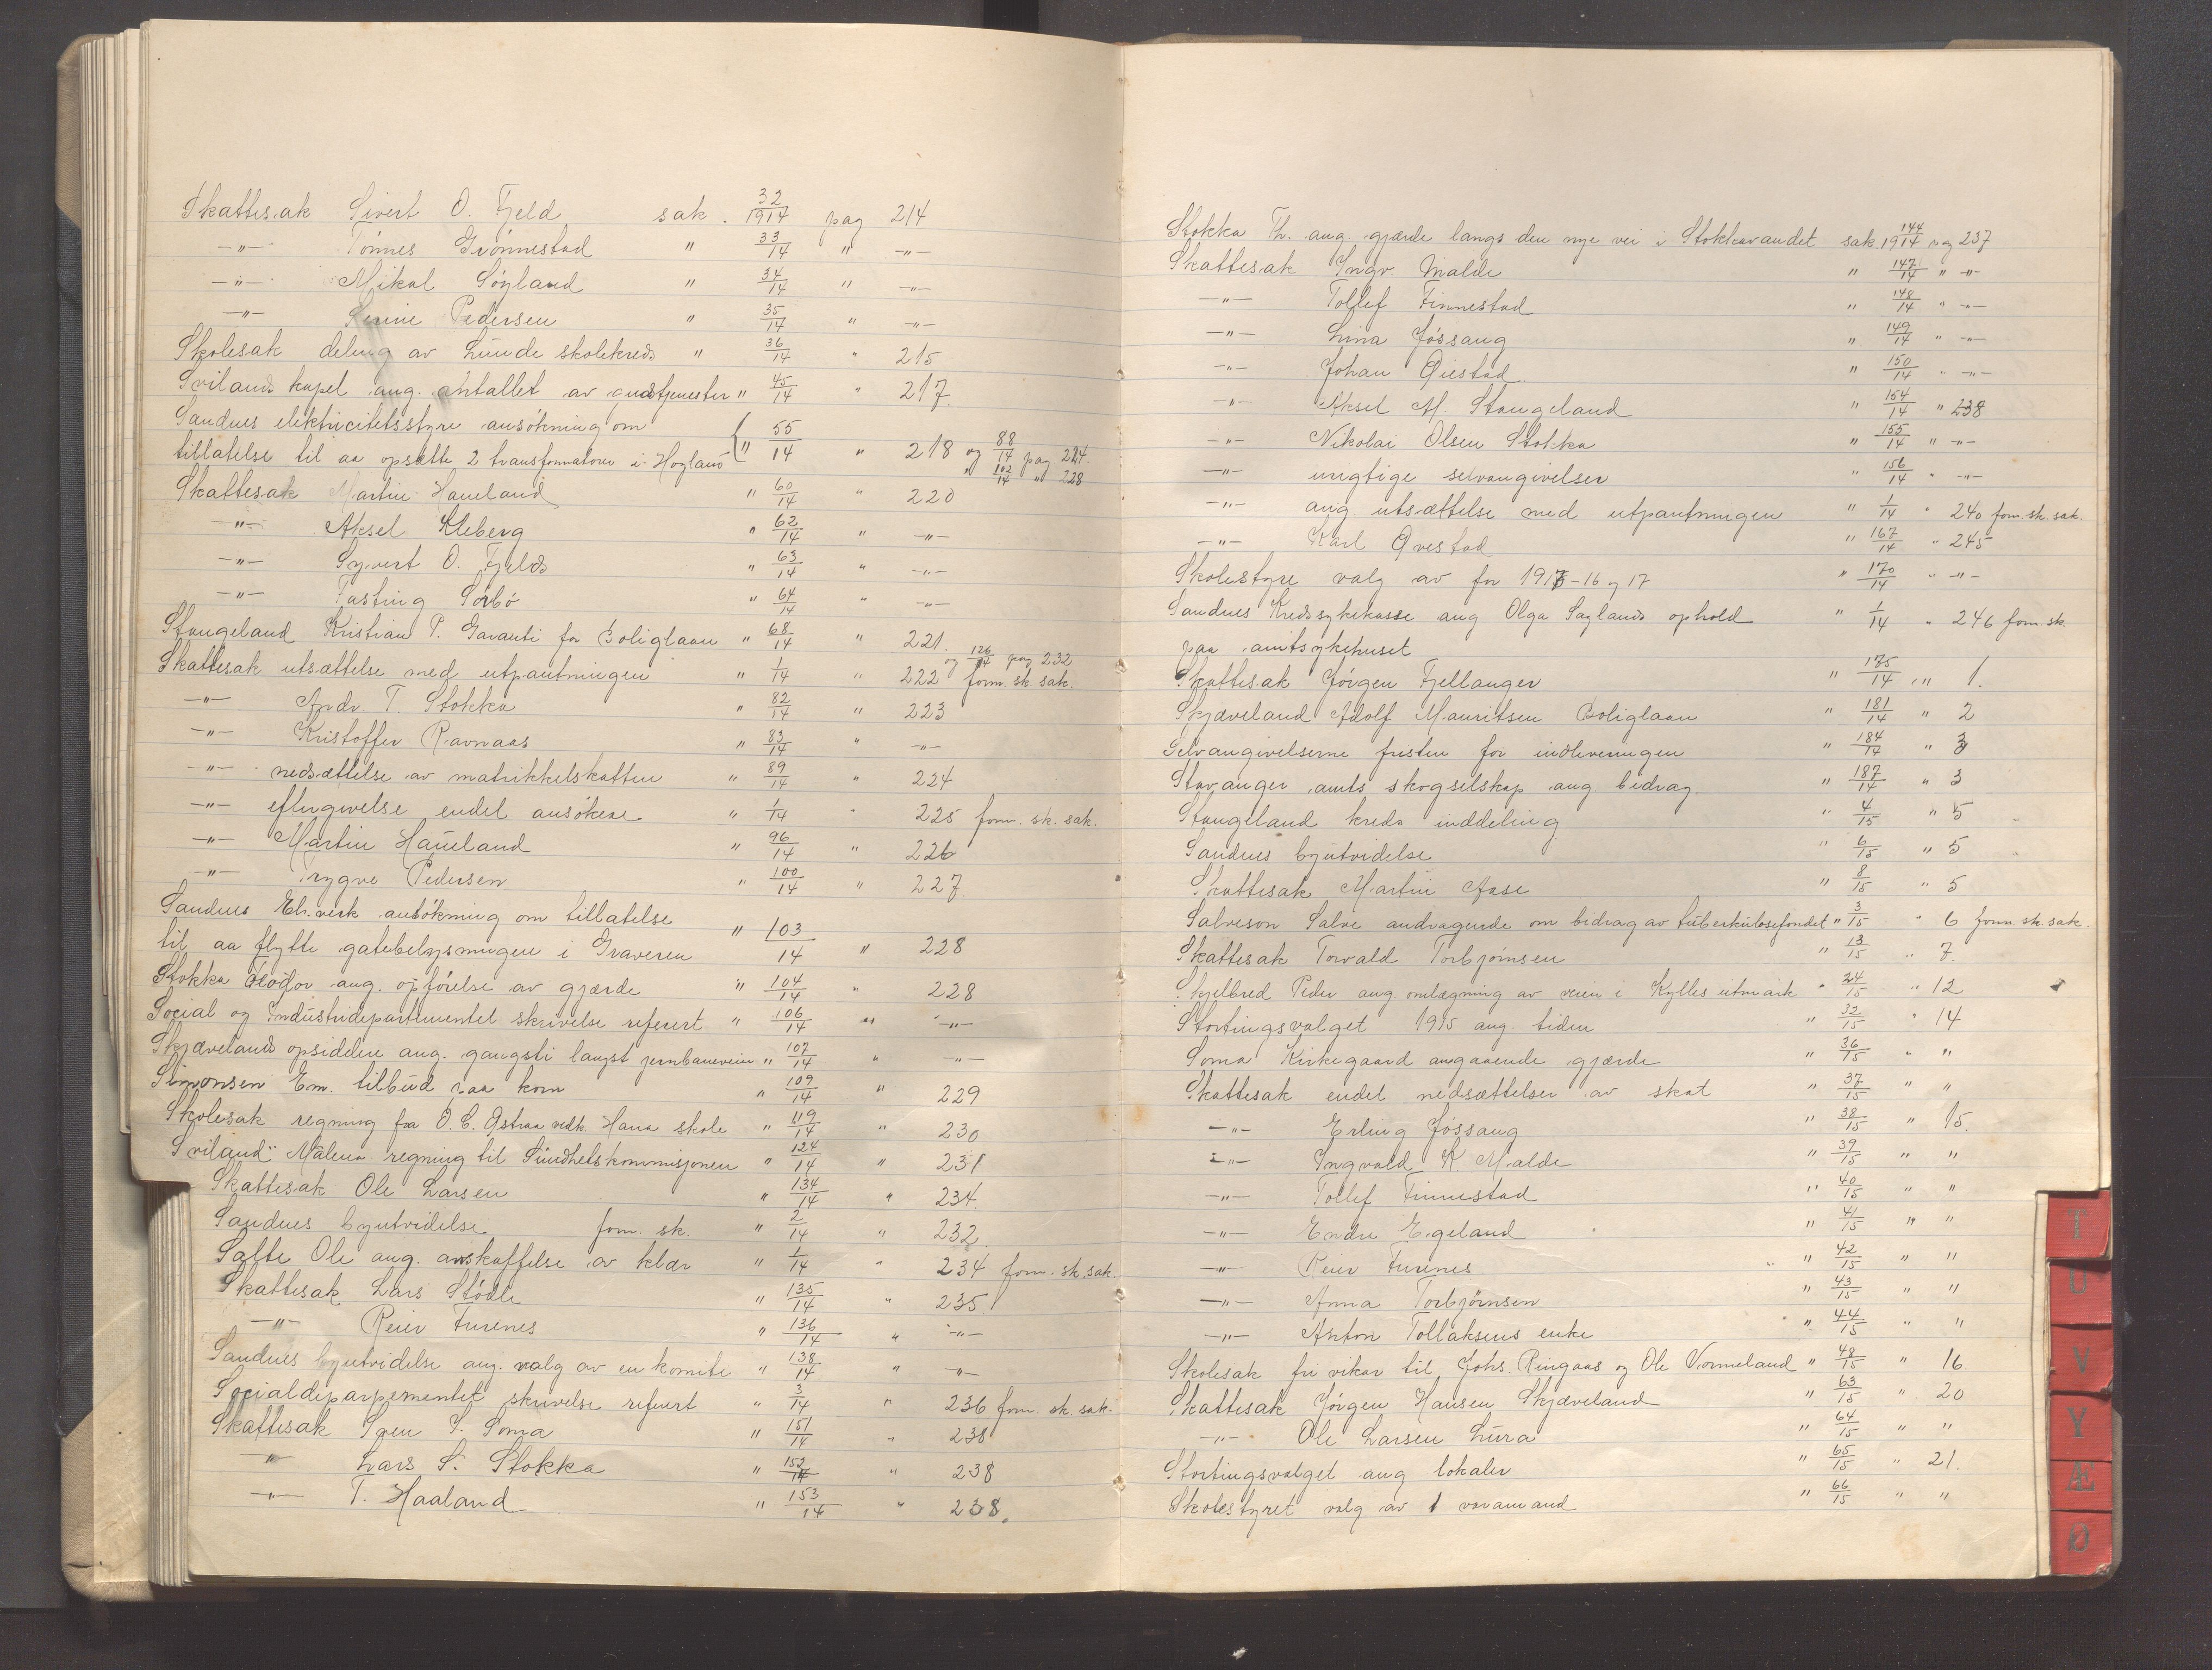 Skattesak Sivert O. Fjeld sak. 32/1914 pag 214
—"— Tönnes Grönnestad " 33/14 " —"—
—"— Mikal Söyland " 34/14 " —"—
—"— Serine Pedersen " 35/14 " —"—
Skolesak deling av Lunde skolekreds " 36/14 " 215
Sviland kapel ang. antallet av gudstjenester " 45/14 " 217.
Sandnes elektricitetsstyre ansökning om
tillatelse til aa opsette 2 transformatorer i Høyland " 55/14 " 218 og 88/14 pag 224.
" 102/14 " 228
Skattesak Martin Haueland " 60/14 " 220
—"— Aksel Kleberg " 62/14 " —"—
—"— Syvert O. Fjeld " 63/14 " —"—
—"— Tasting Sörbö " 64/14 " —"—
Stangeland Kristian P. Garanti for Boliglaan " 68/14 " 221. og 126/14 pag 232
Skattesak utsættelse med utpantningen " 1/14 " 222 form. sk. sak.
—"— Andr. T. Stokka " 82/14 " 223
—"— Kristoffer Ravnaas " 83/14 " —"—
—"— nedsættelse av matrikkelskatten " 89/14 " 224
—"— eftergivelse endel ansökere " 1/14 " 225 form. sk. sak.
—"— Martin Haueland " 96/14 " 226
—"— Trygve Pedersen " 100/14 " 227
Sandnes El.verk ansökning om tillatelse
til aa flytte gatebelysningen i Graveren " 103/14 " 228
Stokka Tiodor ang. opförelse av gjærde " 104/14 " 228
Social og Industridepartementet skrivelse referert " 106/14 " —"—
Skjæveland opsiddere ang. gangsti langst jernbaneveien " 107/14 " —"—
Simonsen Em. tilbud paa korn " 109/14 " 229
Skolesak regning fra O. C. Østraa vedk. Hana skole " 119/14 " 230
Sviland Malena regning til Sundhetskommisjonen " 124/14 " 231
Skattesak Ole Larsen " 134/14 " 234
Sandnes byutvidelse form. sk. " 2/14 " 232
Salte Ole ang. anskaffelse av klær " 1/14 " 234 form. sk. sak.
Skattesak Lars Stödle " 135/14 " 235
—"— Reier Furenes " 136/14 " —"—
Sandnes byutvidelse ang. valg av en komite " 138/14 " —"—
Socialdeparpementet skrivelse referert " 3/14 " 236 form. sk. sak.
Skattesak Sven S. Soma " 151/14 " 238
—"— Lars S. Stokka " 152/14 " 238
—"— T. Haaland " 153/14 " 238.
Stokka Th. ang. gjærde langs den nye vei i Stokkavandet sak. 144/1914 pag 237
Skattesak Ingv. Malde " 147/14 " —"—
—"— Tollef Finnestad " 148/14 " —"—
—"— Lina Jössang " 149/14 " —"—
—"— Johan Øiestad " 150/14 " —"—
—"— Aksel M. Stangeland " 154/14 " 238
—"— Nikolai Olsen Stokka " 155/14 " —"—
—"— urigtige selvangivelser " 156/14 " —"—
—"— ang. utsættelse med utpantningen " 1/14 " 240 form. sk. sak.
—"— Karl Øvestad " 167/14 " 245
Skolestyre valg av for 1915-16 og 17 " 170/14 " —"—
Sandnes Kredssykekasse ang Olga Saylands ophold " 1/14 " 246 form. sk.
paa amtsykehuset
Skattesak Jörgen Fjellanger " 175/14 " 1.
Skjæveland Adolf Mauritsen Boliglaan " 181/14 " 2
Selvangivelserne fristen for indleveringen " 184/14 " 3
Stavanger amts skogselskap ang. bidrag. " 187/14 " 3
Stangeland kreds inddeling " 4/15 " 5
Sandnes byutvidelse " 6/15 " 5
Skattesak Martin Aase " 8/15 " 5
Salveson Salve andragende om bidrag av tuberkulosefondet " 3/15 " 6 form. sk. sak.
Skattesak Torvald Torbjørnsen " 13/15 " 7.
Skjelbred Peder ang omlægning av veien i Kylles utmark " 24/15 " 12
Stortingsvalget 1915 ang. tiden " 32/15 " 14
Soma Kirkegaard angaaende gjærde " 36/15 " "
Skattesak endel nedsættelser av skat " 37/15 " "
—"— Erling Jössang " 38/15 " 15.
—"— Ingvald K. Malde " 39/15 " "
—"— Tollef Finnestad " 40/15 " "
—"— Endre Egeland " 41/15 " "
—"— Reier Furenes " 42/15 " "
—"— Anna Torbjørnsen " 43/15 " "
—"— Anton Tollaksens enke " 44/15 " "
Skolesak fri vikar til Johs. Ringaas og Ole Varmeland " 48/15 " 16
Skattesak Jörgen Hansen Skjæveland " 63/15 " 20
—"— Ole Larsen Lura " 64/15 " "
Stortingsvalget ang lokaler " 65/15 " 21.
Skolestyret valg av 1 varamand " 66/15 " "
T
U
V
Y
Æ
Ø